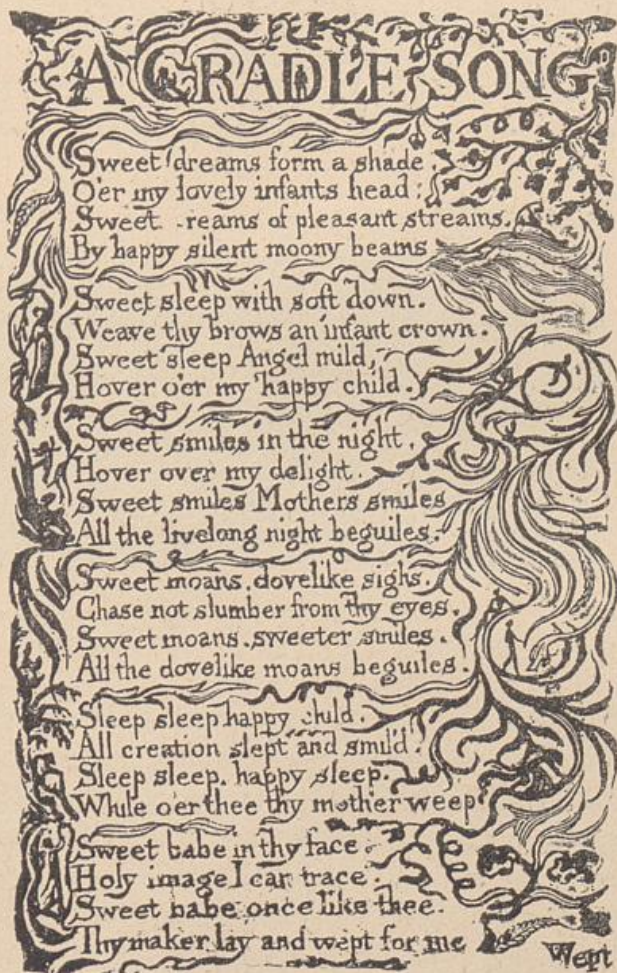 A CRADLE SONG
Sweet dreams form a shade.
O'er my lovely infants head:
Sweet reams of pleasant streams.
By happy silent moony beams
Sweet sleep with soft down.
Weave thy brows an infant crown.
Sweet sleep Angel mild,
Hover o'er my happy child.
Sweet smiles in the night,
Hover over my delight.
Sweet smiles Mothers smiles
All the livelong night beguiles.
Sweet moans, dovelike sighs,
Chase not slumber from thy eyes.
Sweet moans, sweeter smiles.
All the dovelike moans beguiles.
Sleep sleep happy child.
All creation slept and smil'd.
Sleep sleep, happy sleep.
While o'er thee thy mother weep
Sweet babe in thy face.
Holy image I can trace.
Sweet babe once like thee.
Thy maker lay and wept for me
Wept